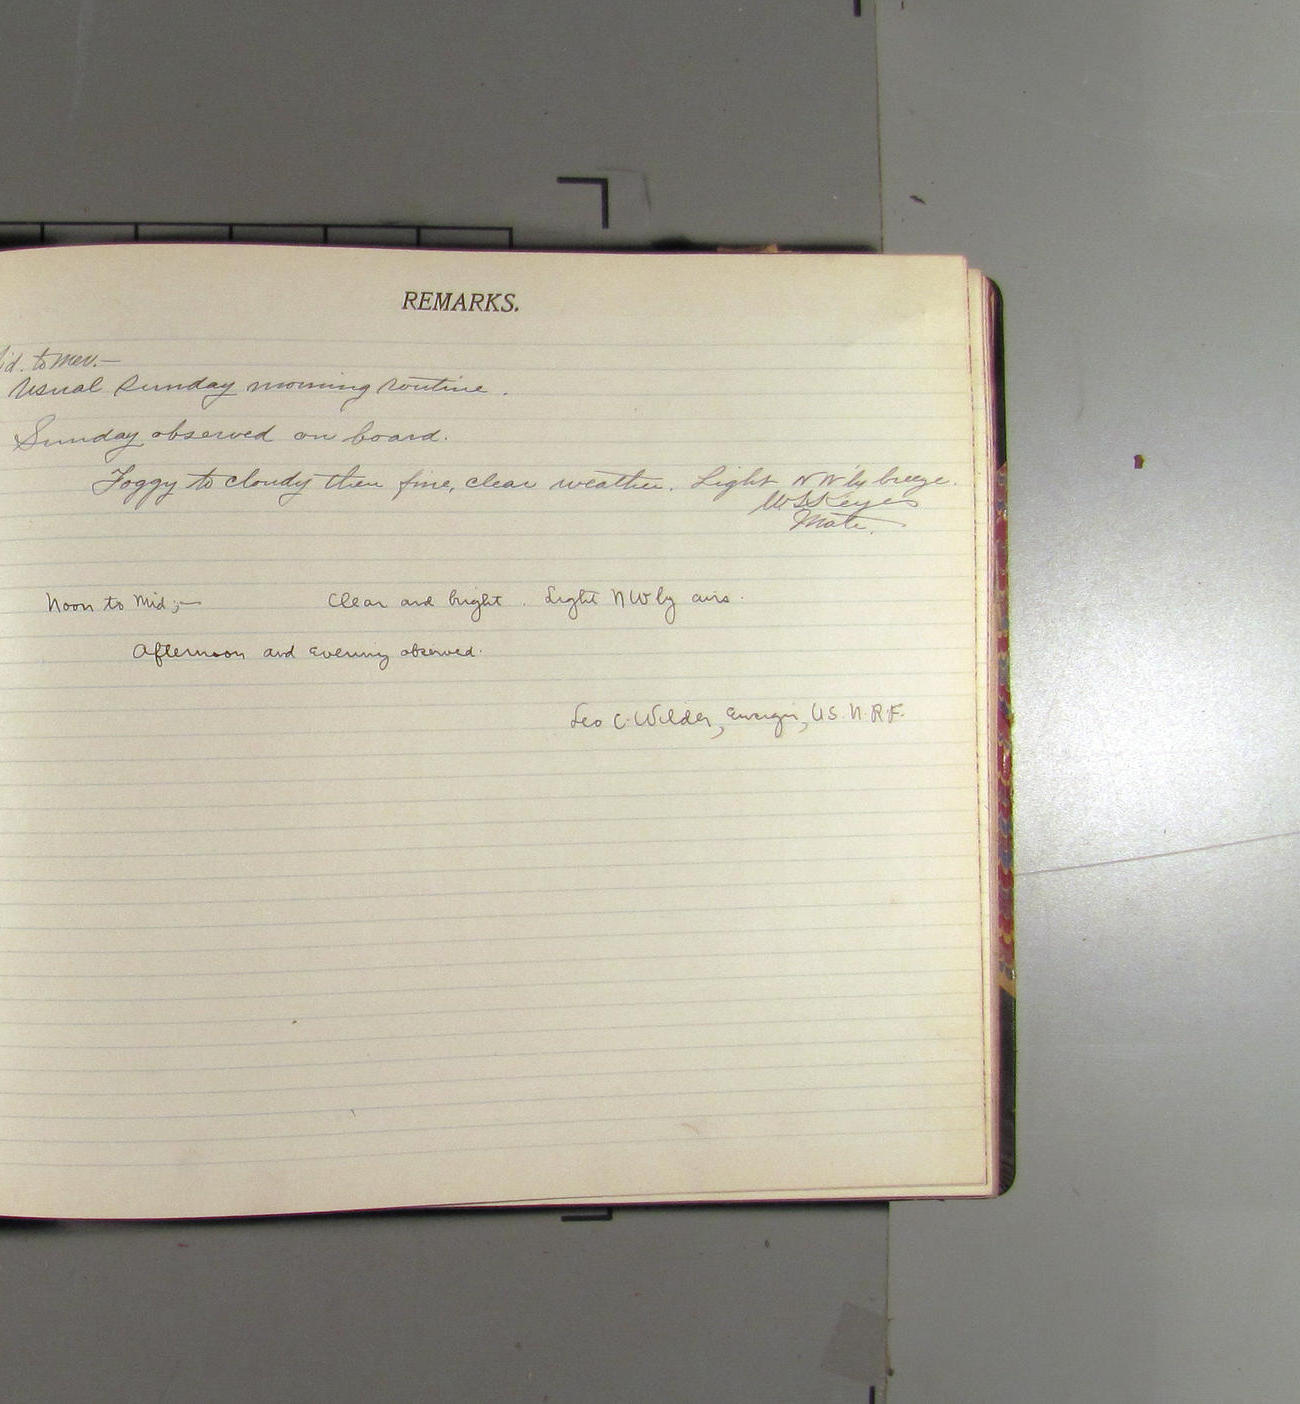 REMARKS.
id. to Mer.—
Usual Sunday morning routine.
Sunday observed on board.
Foggy to cloudy then fine, clear weather. Light NW'ly breeze.
W S Keyes
Mate.
Noon to Mid;— Clear and bright. Light NWly airs.
Afternoon and Evening observed.
Leo C. Wilder, Ensign, U.S.N.R.F.